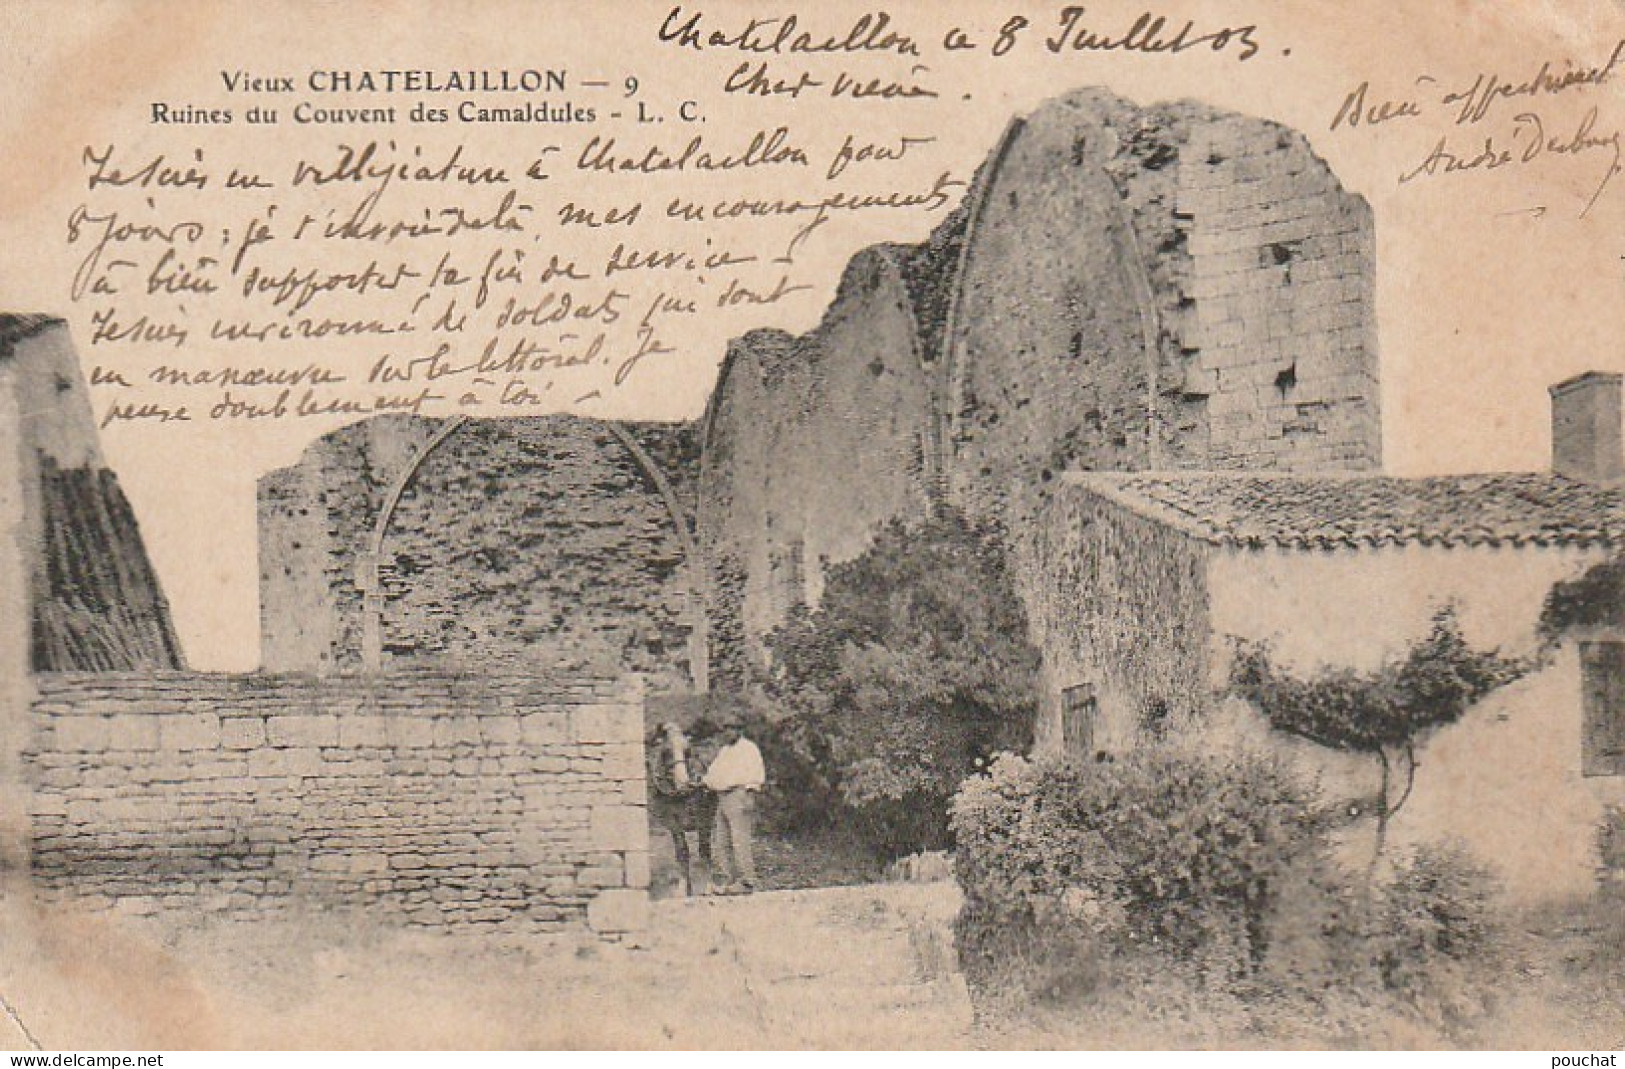 Chatelaillon ce 8 Juillet 03.
Vieux CHATELAILLON — 9
Ruines du Couvent des Camaldules - L. C.
Cher vieux.
Je suis en villégiature à Chatelaillon pour
8 jours; je t'envoie de là, mes encouragements
à bien supporter ta fin de service -
Je suis environné de soldats qui sont
en manœuvre sur le littoral. Je
pense doublement à toi -
Bien affectueusement
André
www.delcampe.net
pouchat